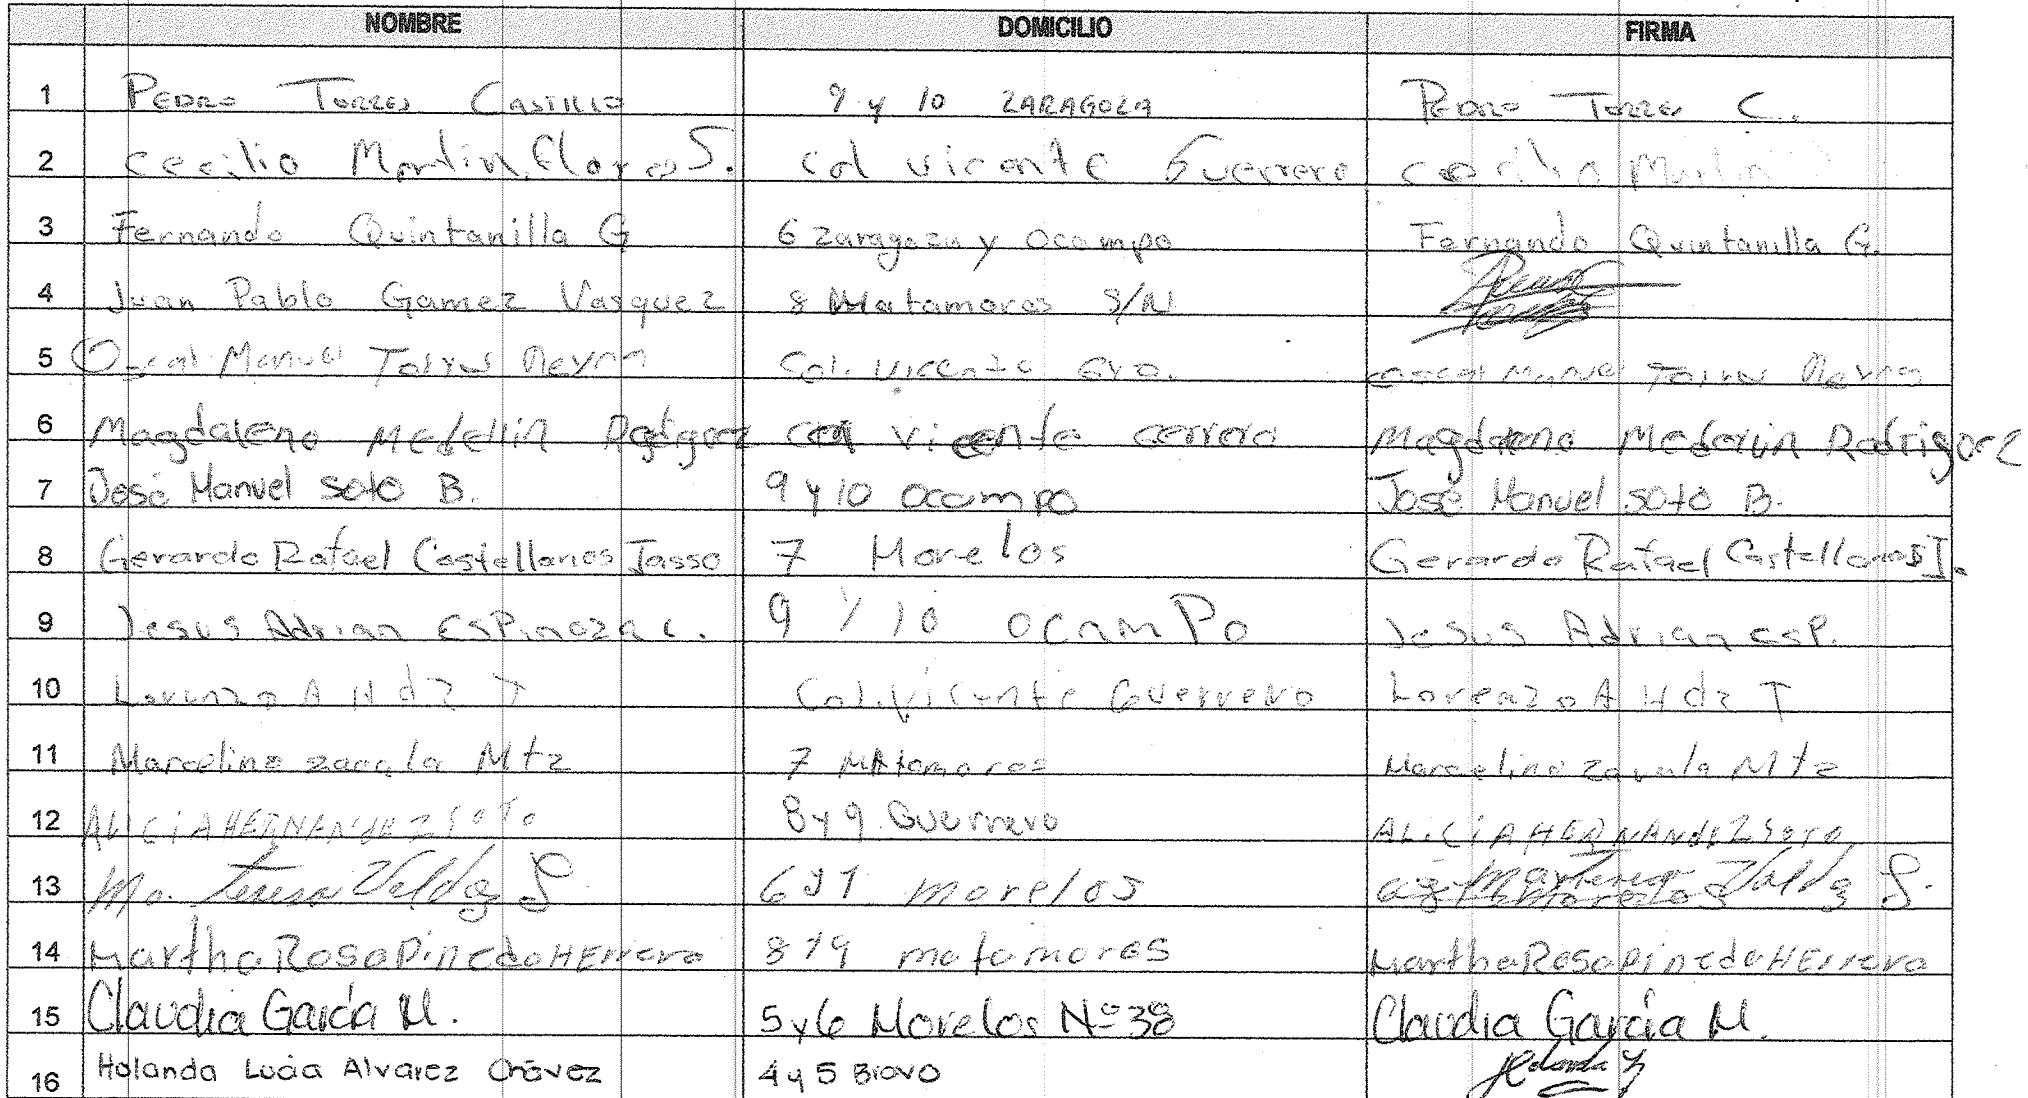 NOMBRE DOMICILIO FIRMA
1 Pedro Torres Castillo 9 y 10 ZARAGOZA Pedro Torres C.
2 Cecilio Martin Flores S. Col Vicente Guerrero Cecilio Martin
3 Fernando Quintanilla G 6 Zaragoza y Ocampo Fernando Quintanilla G.
4 Juan Pablo Gamez Vasquez 8 Matamoros S/N
5 Oscar Manuel Torres Reyna Col. Vicente Gro. Oscar Manuel Torres Reyna
6 Magdaleno Medellin Rodriguez Col Vicente Magdaleno Rodriguez
7 José Manuel Soto B. 9 y 10 Ocampo José Manuel Soto B.
8 Gerardo Rafael Castellanos Jasso 7 Morelos Gerardo Rafael Castellanos J.
9 Jesus Adrian Espinoza C. 9 y 10 Ocampo Jesus Adrian Esp.
10 Lorenzo A Hdz T Col. Vicente Guerrero Lorenzo A Hdz T
11 Marcelino Zavala Mtz 7 Matamoros Marcelino Zavala Mtz
12 ALICIA HERNANdEZ SOTO 8 y 9 Guerrero ALICIA HERNANdEZ SOTO
13 Ma. Teresa Valdez S 6 y 7 morelos Ma Teresa Valdez S.
14 Martha Rosa Pinedo Herrera 8 y 9 matamoros Martha Rosa Pinedo Herrera
15 Claudia García M. 5 y 6 Morelos Nº 38 Claudia García M.
16 Holanda Lucia Alvarez Chávez 4 y 5 Bravo Holanda